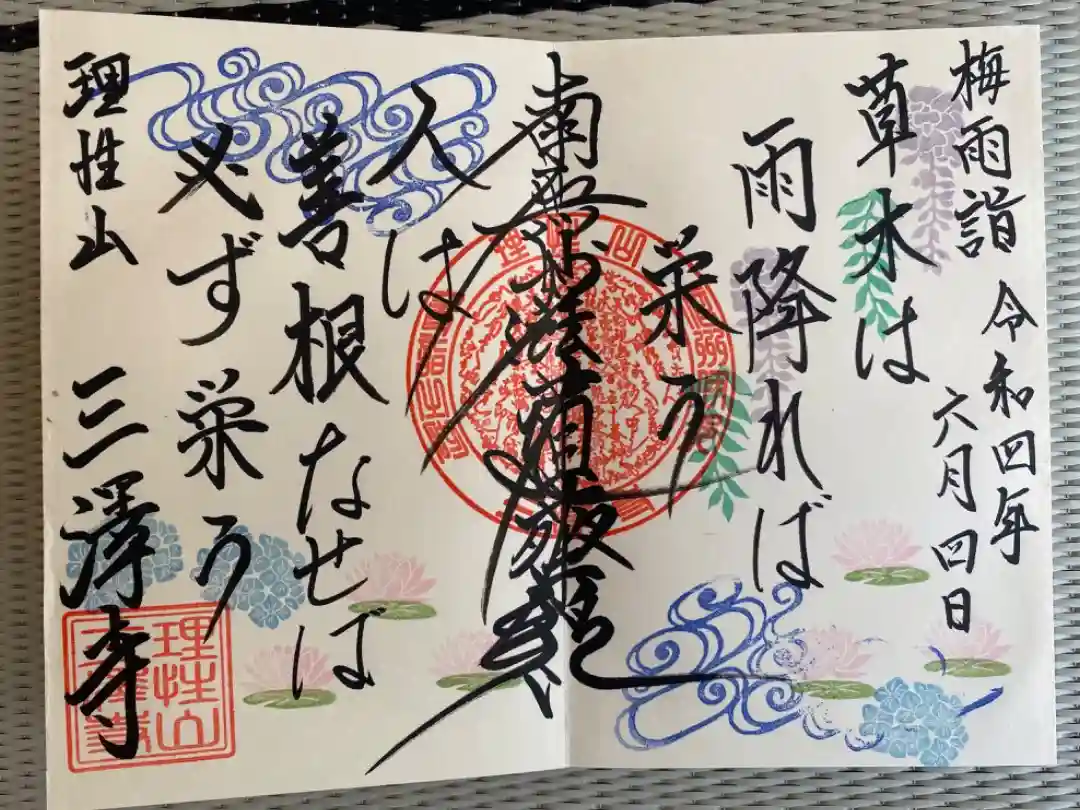 梅雨詣
令和四年
六月四日
草木は
雨降れば
栄う
南無妙法蓮華経
人は
善根なせば
必ず栄う
理性山
三澤寺
理性山